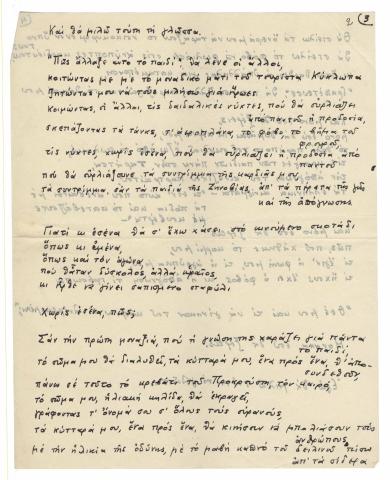 2 3
Καὶ θὰ μιλῶ τούτη τὴ γλῶσσα.
"Πῶς ἄλλαξε αὐτὸ τὸ παιδί", θὰ λένε οἱ ἄλλοι,
κοιτώντας με μὲ τὸ μοναδικὸ μάτι τοῦ τουρίστα Κύκλωπα
ζητώντας μου νὰ τοὺς μιλήσω
κοιμῶντας, οἱ ἄλλοι, τὶς δαιδαλικὲς νύκτες, ποὺ θὰ οὐρλιάζει
ἀπὸ παντοῦ ἡ προδοσία,
σκεπάζοντας τὰ τάνκς, τ' ἀεροπλάνα, τὸ φόβο τὸ βῆμα τοῦ
φρουροῦ,
τὶς νύκτες, χωρὶς ἐσένα, ποὺ θὰ οὐρλιάζει ἡ προδοσία ἀπὸ
παντοῦ
ποὺ θὰ οὐρλιάζουνε τὰ συντρίμμια τῆς καρδιᾶς μου,
τὰ συντρίμμια, σὰν τὰ παιδιὰ τῆς Ζηνοβίας, ἀπ' τὰ πέρατα τῆς γῆς
καὶ τῆς ἀπόγνωσης.
Γιατὶ κι ἐσένα θὰ σ' ἔχω χάσει στὸ σκοτάδι
ὅπως κι ἐμένα,
ὅπως καὶ τὸν ἀγώνα,
ποὺ ἦταν δύσκολος ἀλλὰ ὡραῖος,
κι ἦρθε νὰ γίνει σαπισμένο σταφύλι.
Χωρὶς ἐσένα, πῶς;
Σὰν τὴν πρώτη μοναξιά, ποὺ ἡ γνώση της χαράζει γιὰ πάντα
τὸ παιδί,
τὸ σῶμα μου θὰ διαλυθεῖ, τὰ κύτταρά μου, ἕνα πρὸς ἕνα, θ' ἀπο-
συνδεθοῦν,
πάνω σὲ τοῦτο τὸ κρεβάτι τοῦ Προκρούστη, τὸν καιρό,
τὸ σῶμα μου, ἡλιακὴ κηλίδα, θὰ ἐκραγεῖ,
γράφοντας τ' ὄνομά σου σ' ὅλους τοὺς οὐρανούς,
τὰ κύτταρά μου, ἕνα πρὸς ἕνα, θὰ κινήσουν νὰ μπαλιάσουν τοὺς
ἀνθρώπους,
μὲ τὴν ἡλικία τῆς ὀδύνης, μὲ τὸ μαβὴ καπνὸ τοῦ δειλινοῦ πίσω
ἀπ' τὰ σίδερα